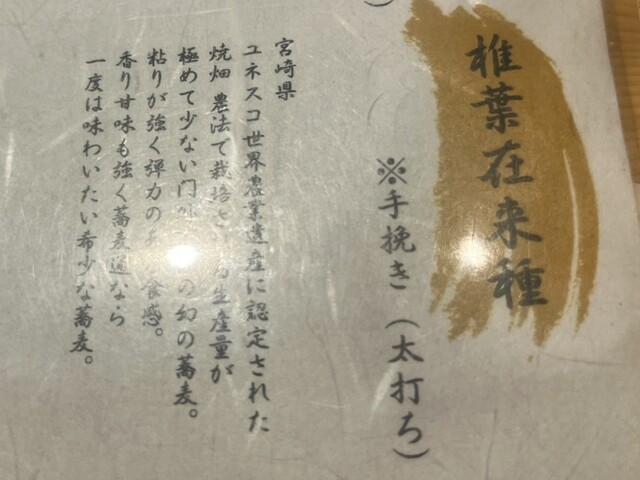 椎葉在来種
※手挽き（太打ち）
宮崎県
ユネスコ世界農業遺産に認定された
焼畑農法で栽培され 生産量が
極めて少ない門外 の幻の蕎麦。
粘りが強く弾力の 食感。
香り甘味も強く蕎麦通なら
一度は味わいたい希少な蕎麦。